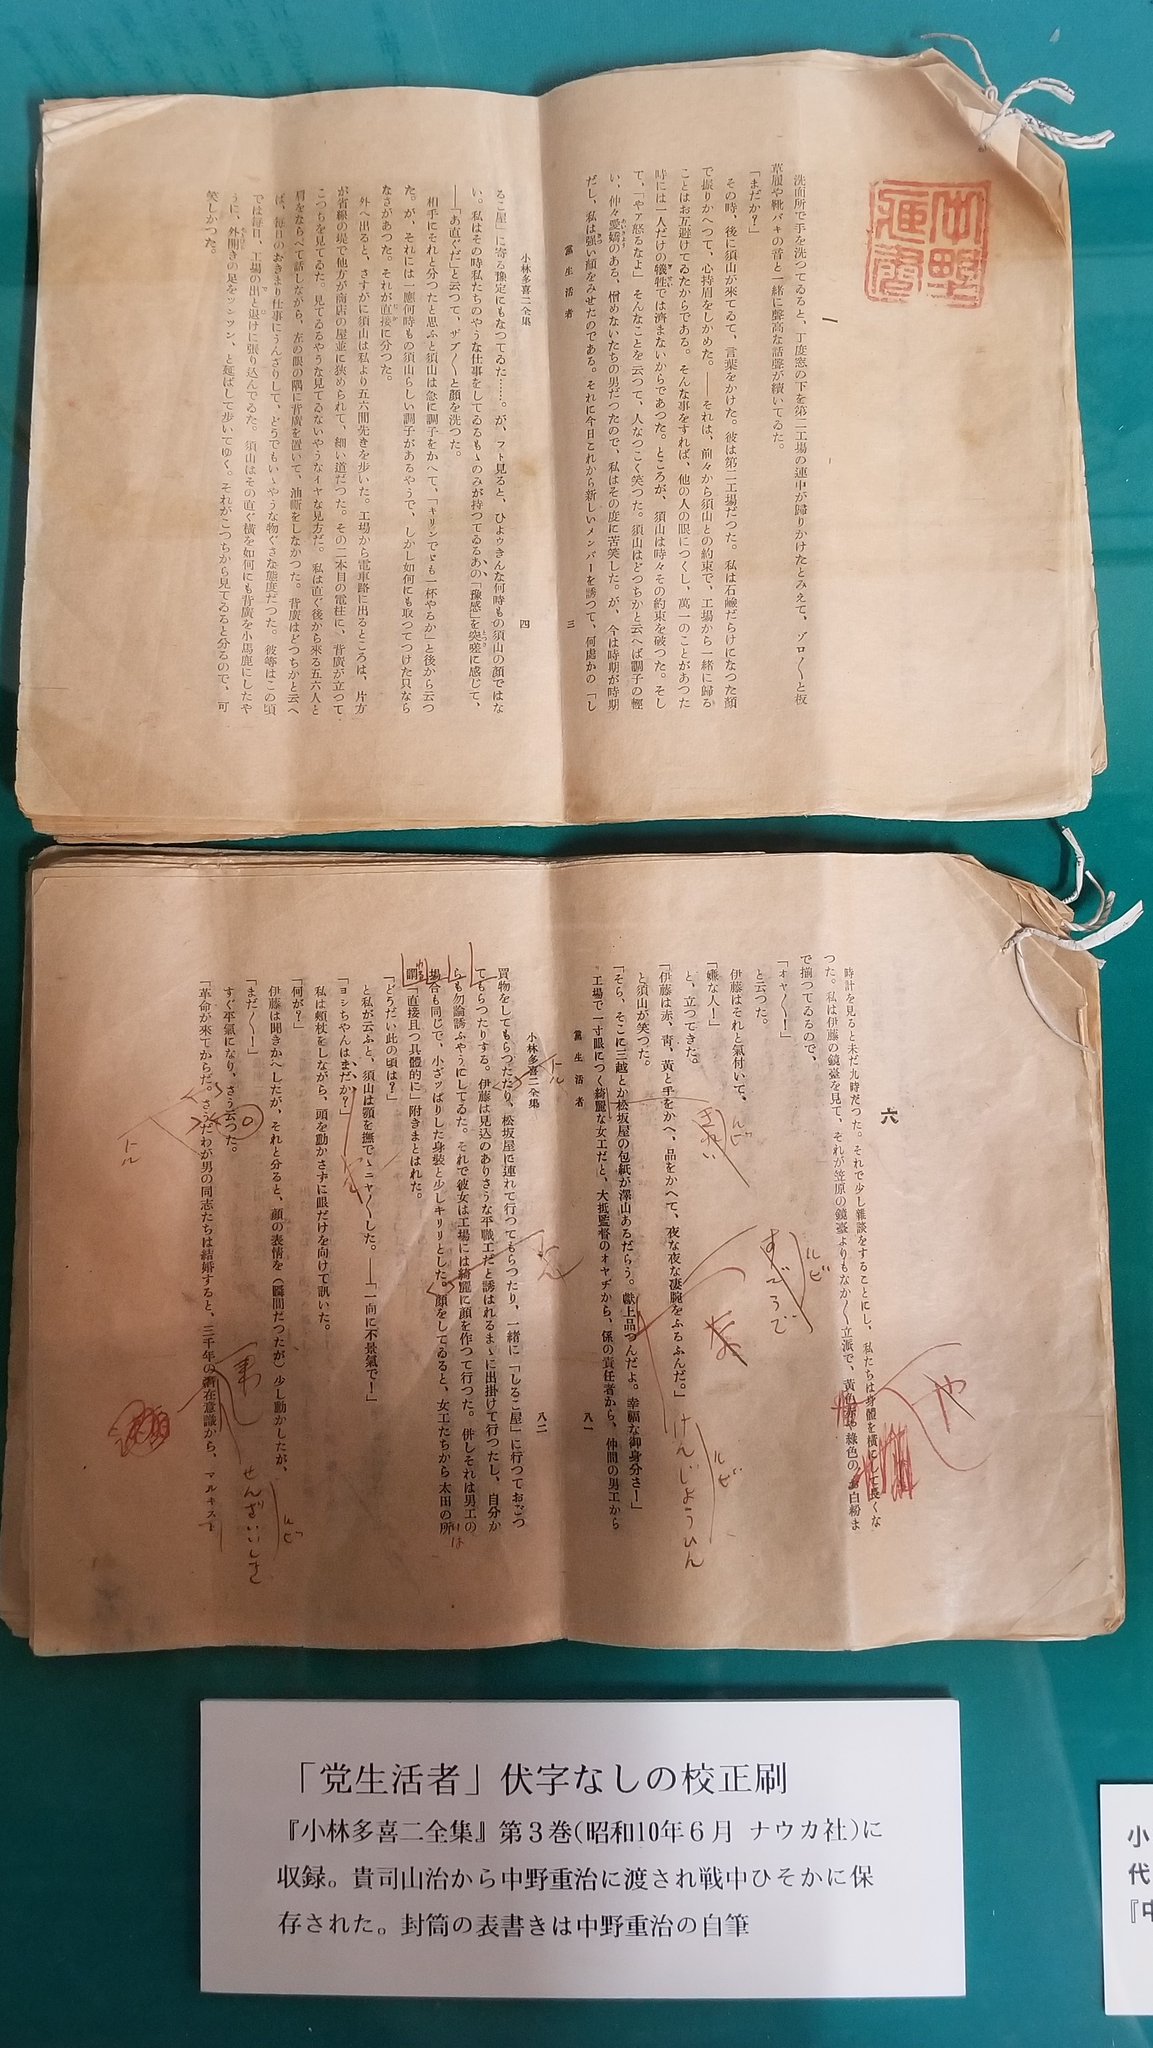 中野蔵書
一
洗面所で手を洗つてゐると、丁度窓の下を第二工場の連中が歸りかけたとみえて、ゾロ〳〵と板
草履や靴バキの音と一緒に聲高な話聲が續いてゐた。
「まだか？」
その時、後に須山が來てゐて、言葉をかけた。彼は第二工場だつた。私は石鹼だらけになつた顏
で振りかへつて、心持眉をしかめた。――それは、前々から須山との約束で、工場から一緒に歸る
ことはお互避けてゐたからである。そんな事をすれば、他の人の眼につくし、萬一のことがあつた
時には一人だけの犠牲では濟まないからであつた。ところが、須山は時々その約束を破つた。そし
て、「やア怒るなよ」そんなことを云つて、人なつこく笑つた。須山はどつちかと云へば調子の輕
い、仲々愛嬌のある、憎めないたちの男だつたので、私はその度に苦笑した。が、今は時期が時期
だし、私は强い顏をみせたのである。それに今日これから新しいメンバーを誘つて、何處かの「し
黨生活者
三
小林多喜二全集
四
るこ屋」に寄る豫定にもなつてゐた……。が、フト見ると、ひよゥきんな何時もの須山の顏ではな
い。私はその時私たちのやうな仕事をしてゐるものゝみが持つてゐるあの「豫感」を突嗟に感じて、
――「あ直ぐだ」と云つて、ザブ〳〵と顏を洗つた。
相手にそれと分つたと思ふと須山は急に調子をかへて、「キリンでゞも一杯やるか」と後から云つ
た。が、それには一應何時もの須山らしい調子があるやうで、しかし如何にも取つてつけた只なら
なさがあつた。それが直接に分つた。
外へ出ると、さすがに須山は私より五六間先きを歩いた。工場から電車路に出るところは、片方
が省線の堤で他方が商店の屋並に狹められて、細い道だつた。その二本目の電柱に、背廣が立つて
こつちを見てゐた。見てゐるやうな見てゐないやうなイヤな見方だ。私は直ぐ後から來る五六人と
肩をならべて話しながら、左の眼の隅に背廣を置いて、油斷をしなかつた。背廣はどつちかと云へ
ば、毎日のおきまり仕事にうんざりして、どうでもいゝやうな物ぐさな態度だつた。彼等はこの頃
では毎日、工場の出と退けに張り込んでゐた。須山はその直ぐ横を如何にも背廣を小馬鹿にしたや
うに、外開きの足をツシツン、と延ばして歩いてゆく。それがこつちから見てゐると分るので、可
笑しかつた。
六
時計を見ると未だ九時だつた。それで少し雜談をすることにし、私たちは身體を橫にして長くな
つた。私は伊藤の鏡臺を見て、それが笠原の鏡臺よりもなか〳〵立派で、黃色赤や綠色のお白粉ま
で揃つてゐるので、
「オヤ〳〵！」
と云つた。
伊藤はそれと氣付いて、
「嫌な人！」
と、立つてきた。
「伊藤は赤、靑、黃と手をかへ、品をかへて、夜な夜な凄腕をふるふんだ。」
と須山が笑つた。
「そら、そこに三越とか松坂屋の包紙が澤山あるだらう。獻上品つんだよ。幸福な御身分さ！」
工場で一寸眼につく綺麗な女工だと、大抵監督のオヤヂから、係の責任者から、仲間の男工から
や
ルビ
すごうで
な
ルビ
けんじようひん
ルビ
きれい
黨生活者
八一
小林多喜二全集
八二
買物をしてもらつたたり、松坂屋に連れて行つてもらつたり、一緒に「しるこ屋」に行つておごつ
てもらつたりする。伊藤は見込のありさうな平職工だと誘はれるまゝに出掛けて行つたし、自分か
らも勿論誘ふやうにしてゐた。それで彼女は工場には綺麗に顏を作つて行つた。併しそれは男工の
場合も同じで、小ざツぱりした身裝と少しキリリとした。顏をしてゐると、女工たちから太田の所
謂「直接且つ具體的に」附きまとはれた。
「どうだい此の頃は？」
と私が云ふと、須山は顎を撫でゝニヤ〳〵した。――「一向に不景氣で！」
「ヨシちやんはまだか？」
私は頰杖をしながら、頭を動かさずに眼だけを向けて訊いた。
「何が？」
伊藤は聞きかへしたが、それと分ると、顏の表情を（瞬間だつたが）少し動かしたが、
「まだ〳〵！」
すぐ平氣になり、さう云つた。
「革命が來てからだ。さうだわが男の同志たちは結婚すると、三千年の潛在意識から、マルキスト
トル
トル
ルビ
せんざいいしき
「党生活者」伏字なしの校正刷
『小林多喜二全集』第３巻(昭和10年６月 ナウカ社)に
収録。貴司山治から中野重治に渡され戦中ひそかに保
存された。封筒の表書きは中野重治の自筆
小
代
『中